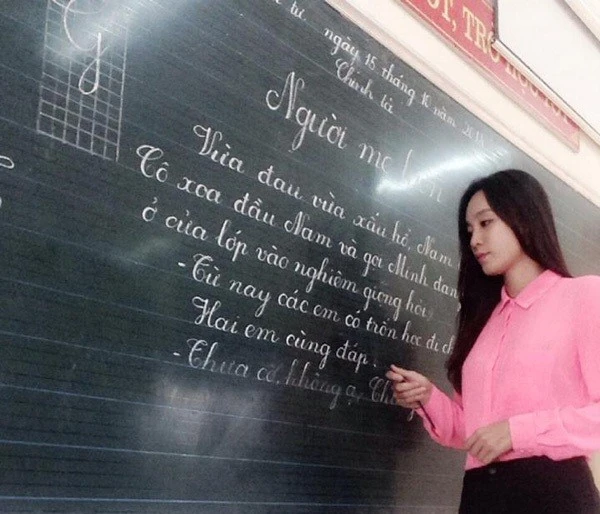 ỐT, TRÒ HỌC
G
tư, ngày 15 tháng 10 năm
Chính tả
Người mẹ hiền
Vừa đau vừa xấu hổ, Nam
Cô xoa đầu Nam và gọi Minh đang
ở cửa lớp vào nghiêm giọng hỏi:
- Từ nay các em có trốn học đi ch
Hai em cùng đáp.
- Thưa cô, không ạ. Ch